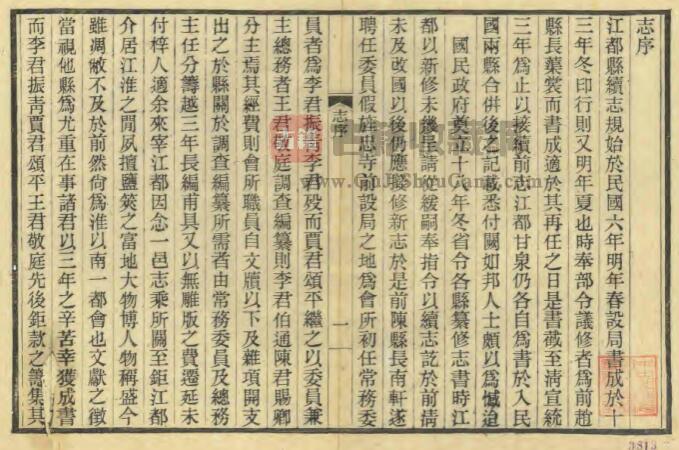 志序
江都縣續志規始於民國六年明年春設局書成於十
三年冬印行則又明年夏也時奉部令議修者爲前趙
縣長葉裳而書成適於其再任之日是書截至清宣統
三年爲止以接續前志江都甘泉仍各自爲書於入民
國兩縣合併後之記載悉付闕如邦人士頗以爲憾迨
國民政府奠
十
年冬省令各縣纂修志書時江
都以新修未幾呈請從緩嗣奉指令以續志訖於前清
未及改國以後仍應賡修新志於是前陳縣長南軒遂
聘任委員假旌忠寺前設局之地爲會所初任常務委
志序
一
員者爲李君振
李君歿而賈君頌平繼之以委員兼
主總務者王君敬庭調查編纂則李君伯通陳君賜卿
分主焉其經費則會所職員自文牘以下及雜項開支
出之於縣關於調查編纂所需者由常務委員及總務
主任分籌越三年長編甫具又以無雕版之費遷延未
付梓人適余來宰江都因念一邑志乘所關至鉅江都
介居江淮之間夙擅鹽筴之富地大物博人物稱盛今
雖凋敝不及於前然尙爲淮以南一都會也文獻之徵
當視他縣爲尤重在事諸君以三年之辛苦幸獲成書
而李君振靑賈君頌平王君敬庭先後鉅款之籌集其
3813